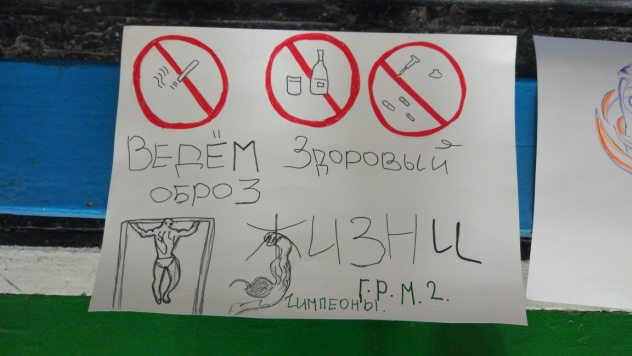 ВЕДЁМ ЗДОРОВЫЙ
ОБРОЗ
ЖИЗНИ
Г.Р.М.2.
ЧИМПЕОНЫ.